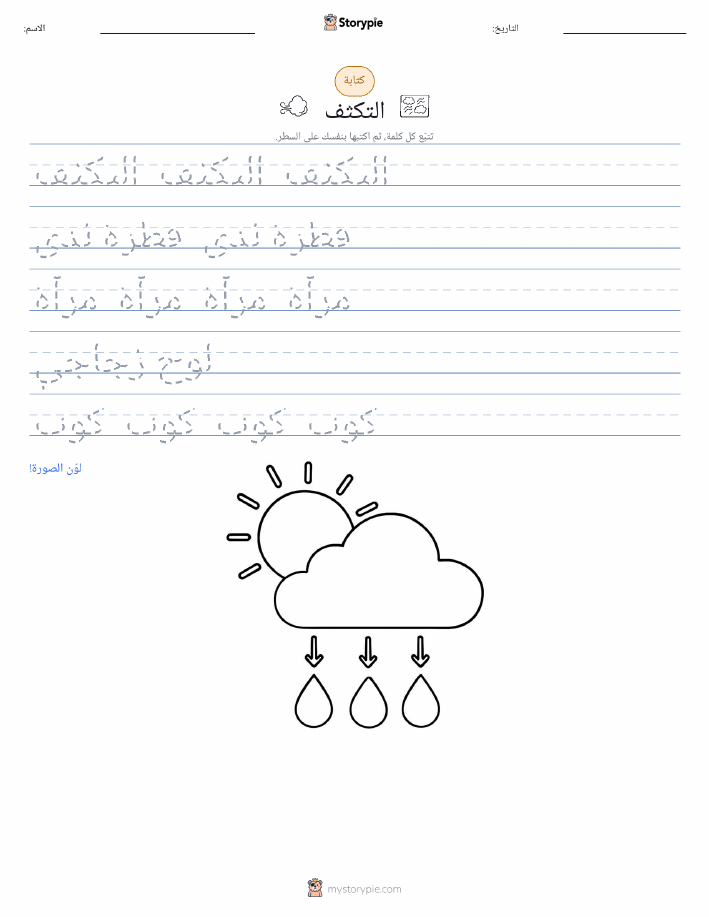 الاسم:
Storypie
التاريخ:
كتابة
التكثف
تتبّع كل كلمة، ثم اكتبها بنفسك على السطر.
التكثف التكثف التكثف
قطرة ندى قطرة ندى
مرآة مرآة مرآة مرآة
لوح زجاجي
كوب كوب كوب كوب
لوّن الصورة!
mystorypie.com